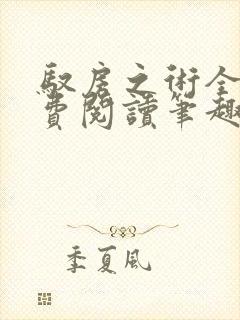 馭房之術全
費閱讀筆趣
季夏風